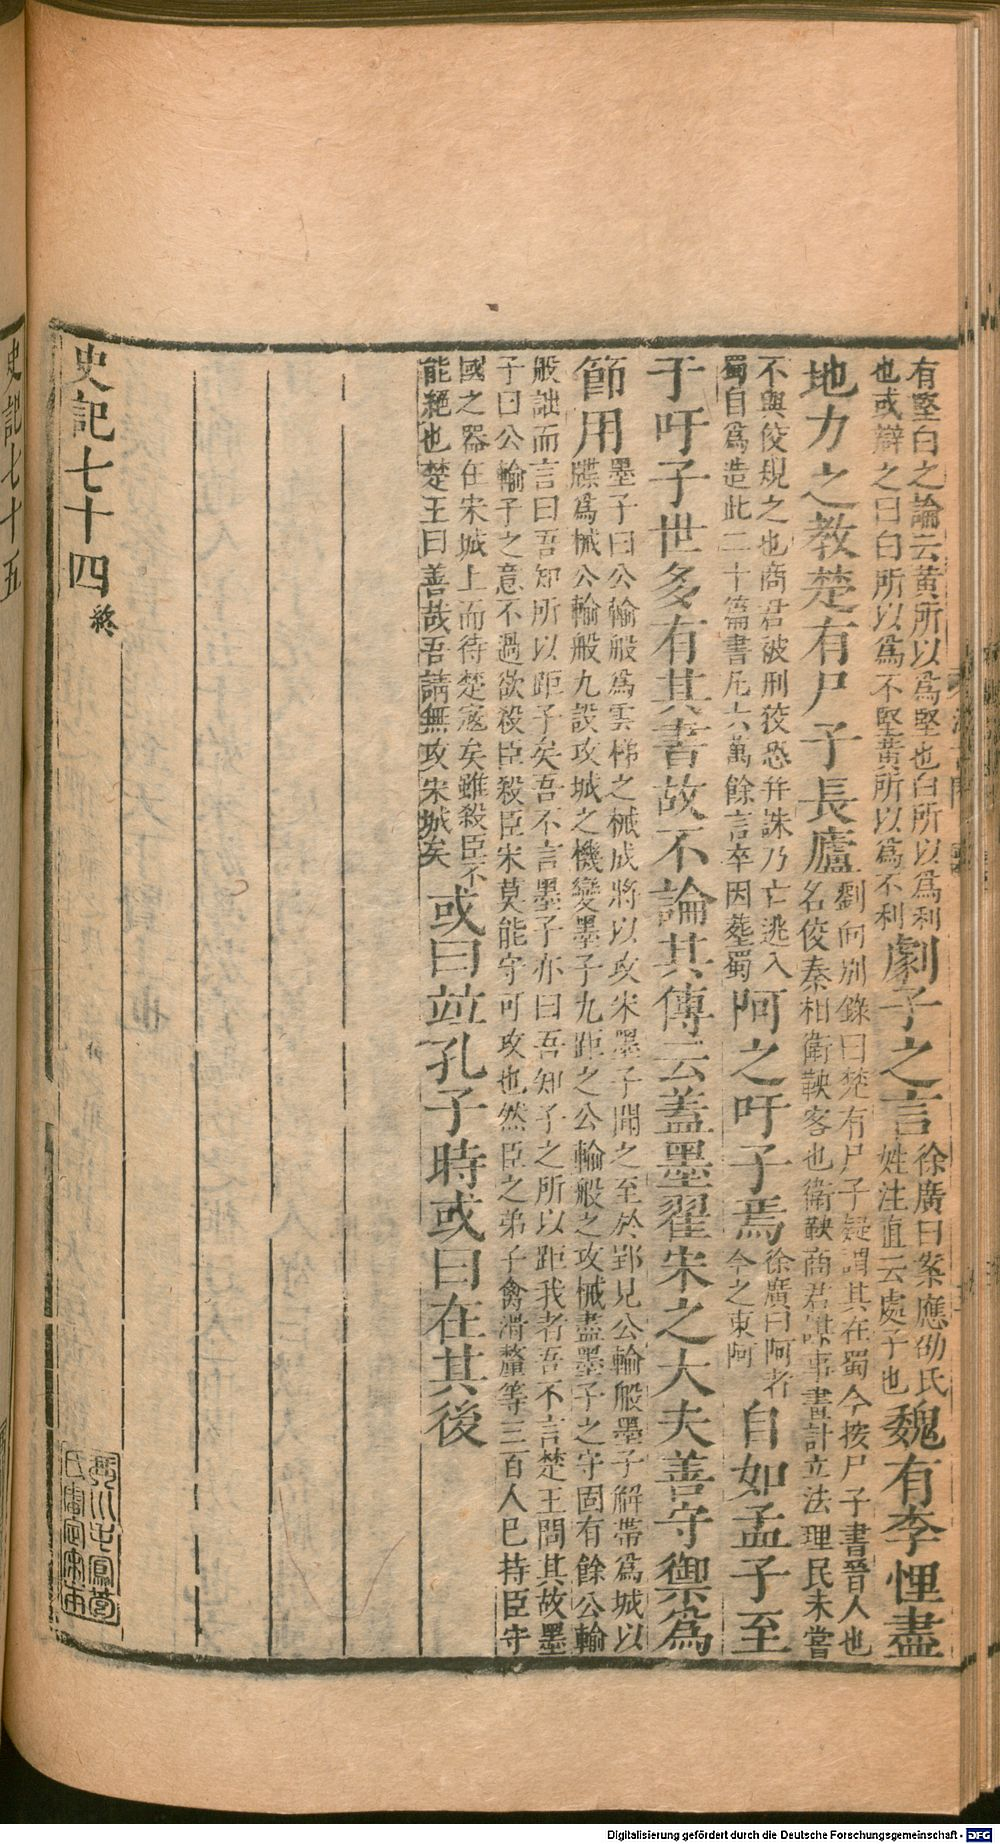 有堅白之論云黃所以爲堅也白所以爲利也或辯之曰白所以爲不堅黃所以爲不利劇子之言徐廣曰案應劭氏姓注直云處子也魏有李悝盡
地力之教楚有尸子長廬劉向別錄曰楚有尸子疑謂其在蜀今按尸子書晉人也名佼秦相衛鞅客也衛鞅商君謀事畫計立法理民未嘗
不與佼規之也商君被刑佼恐并誅乃亡逃入蜀自爲造此二十篇書凡六萬餘言卒因葬蜀阿之吁子焉徐廣曰阿者今之東阿自如孟子至
于吁子世多有其書故不論其傳云蓋墨翟宋之大夫善守禦爲
節用墨子曰公輸般爲雲梯之械成將以攻宋墨子聞之至於郢見公輸般墨子解帶爲城以牒爲械公輸般九設攻城之機變墨子九距之公輸般之攻械盡墨子之守固有餘公輸
般詘而言曰吾知所以距子矣吾不言墨子亦曰吾知子之所以距我者吾不言楚王問其故墨子曰公輸子之意不過欲殺臣殺臣宋莫能守可攻也然臣之弟子禽滑釐等三百人已持臣守
國之器在宋城上而待楚寇矣雖殺臣不能絕也楚王曰善哉吾請無攻宋城矣或曰竝孔子時或曰在其後
史記七十四終
史記七十五
Digitalisierung gefördert durch die Deutsche Forschungsgemeinschaft - DFG